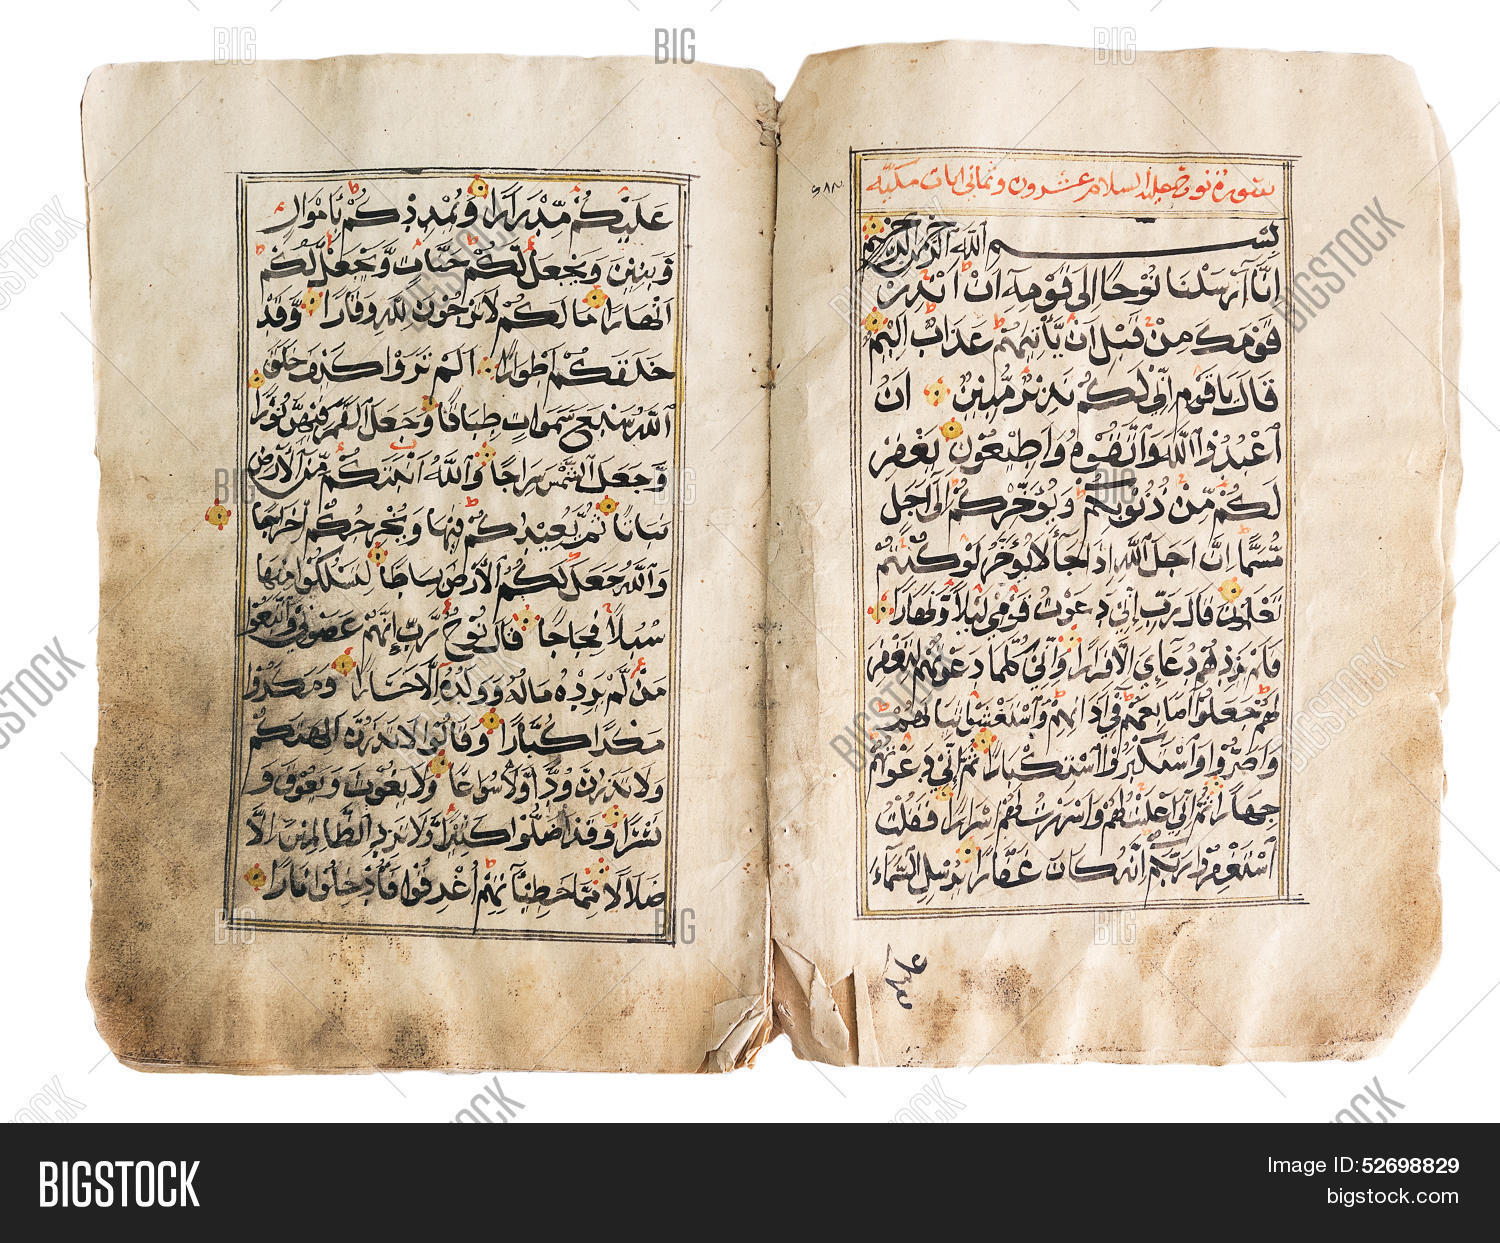 سورة نوح عليه السلام عشرون وثماني ايات مكية
بسم الله الرحمن الرحيم
اِنَّا اَرْسَلْنَا نُوْحًا اِلٰى قَوْمِهٖ اَنْ اَنْذِرْ
قَوْمَكَ مِنْ قَبْلِ اَنْ يَّأْتِيَهُمْ عَذَابٌ اَلِيْمٌ
قَالَ يَا قَوْمِ اِنِّيْ لَكُمْ نَذِيْرٌ مُّبِيْنٌ اَنِ
اعْبُدُوا اللّٰهَ وَاتَّقُوْهُ وَاَطِيْعُوْنِ يَغْفِرْ
لَكُمْ مِّنْ ذُنُوْبِكُمْ وَيُؤَخِّرْكُمْ اِلٰى اَجَلٍ
مُّسَمًّى اِنَّ اَجَلَ اللّٰهِ اِذَا جَآءَ لَا يُؤَخَّرُ لَوْ كُنْتُمْ
تَعْلَمُوْنَ قَالَ رَبِّ اِنِّيْ دَعَوْتُ قَوْمِيْ لَيْلًا وَّنَهَارًا
فَلَمْ يَزِدْهُمْ دُعَاءِيْ اِلَّا فِرَارًا وَاِنِّيْ كُلَّمَا دَعَوْتُهُمْ لِتَغْفِرَ
لَهُمْ جَعَلُوْا اَصَابِعَهُمْ فِيْ اٰذَانِهِمْ وَاسْتَغْشَوْا ثِيَابَهُمْ
وَاَصَرُّوْا وَاسْتَكْبَرُوا اسْتِكْبَارًا ثُمَّ اِنِّيْ دَعَوْتُهُمْ
جِهَارًا ثُمَّ اِنِّيْ اَعْلَنْتُ لَهُمْ وَاَسْرَرْتُ لَهُمْ اِسْرَارًا فَقُلْتُ
اسْتَغْفِرُوْا رَبَّكُمْ اِنَّهٗ كَانَ غَفَّارًا يُرْسِلِ السَّمَآءَ
عَلَيْكُمْ مِّدْرَارًا وَيُمْدِدْكُمْ بِاَمْوَالٍ
وَّبَنِيْنَ وَيَجْعَلْ لَكُمْ جَنَّاتٍ وَّيَجْعَلْ لَكُمْ
اَنْهَارًا مَا لَكُمْ لَا تَرْجُوْنَ لِلّٰهِ وَقَارًا وَقَدْ
خَلَقَكُمْ اَطْوَارًا اَلَمْ تَرَوْا كَيْفَ خَلَقَ
اللّٰهُ سَبْعَ سَمٰوَاتٍ طِبَاقًا وَجَعَلَ الْقَمَرَ فِيْهِنَّ نُوْرًا
وَجَعَلَ الشَّمْسَ سِرَاجًا وَاللّٰهُ اَنْبَتَكُمْ مِّنَ الْاَرْضِ
نَبَاتًا ثُمَّ يُعِيْدُكُمْ فِيْهَا وَيُخْرِجُكُمْ اِخْرَاجًا
وَاللّٰهُ جَعَلَ لَكُمُ الْاَرْضَ بِسَاطًا لِتَسْلُكُوْا مِنْهَا
سُبُلًا فِجَاجًا قَالَ نُوْحٌ رَّبِّ اِنَّهُمْ عَصَوْنِيْ وَاتَّبَعُوْا
مَنْ لَّمْ يَزِدْهُ مَالُهٗ وَوَلَدُهٗ اِلَّا خَسَارًا وَمَكَرُوْا
مَكْرًا كُبَّارًا وَقَالُوْا لَا تَذَرُنَّ اٰلِهَتَكُمْ
وَلَا تَذَرُنَّ وَدًّا وَّلَا سُوَاعًا وَلَا يَغُوْثَ وَيَعُوْقَ وَ
نَسْرًا وَقَدْ اَضَلُّوْا كَثِيْرًا وَلَا تَزِدِ الظَّالِمِيْنَ اِلَّا
ضَلَالًا مِمَّا خَطِيْئَاتِهِمْ اُغْرِقُوْا فَاُدْخِلُوْا نَارًا
BIGSTOCK
Image ID: 52698829
bigstock.com